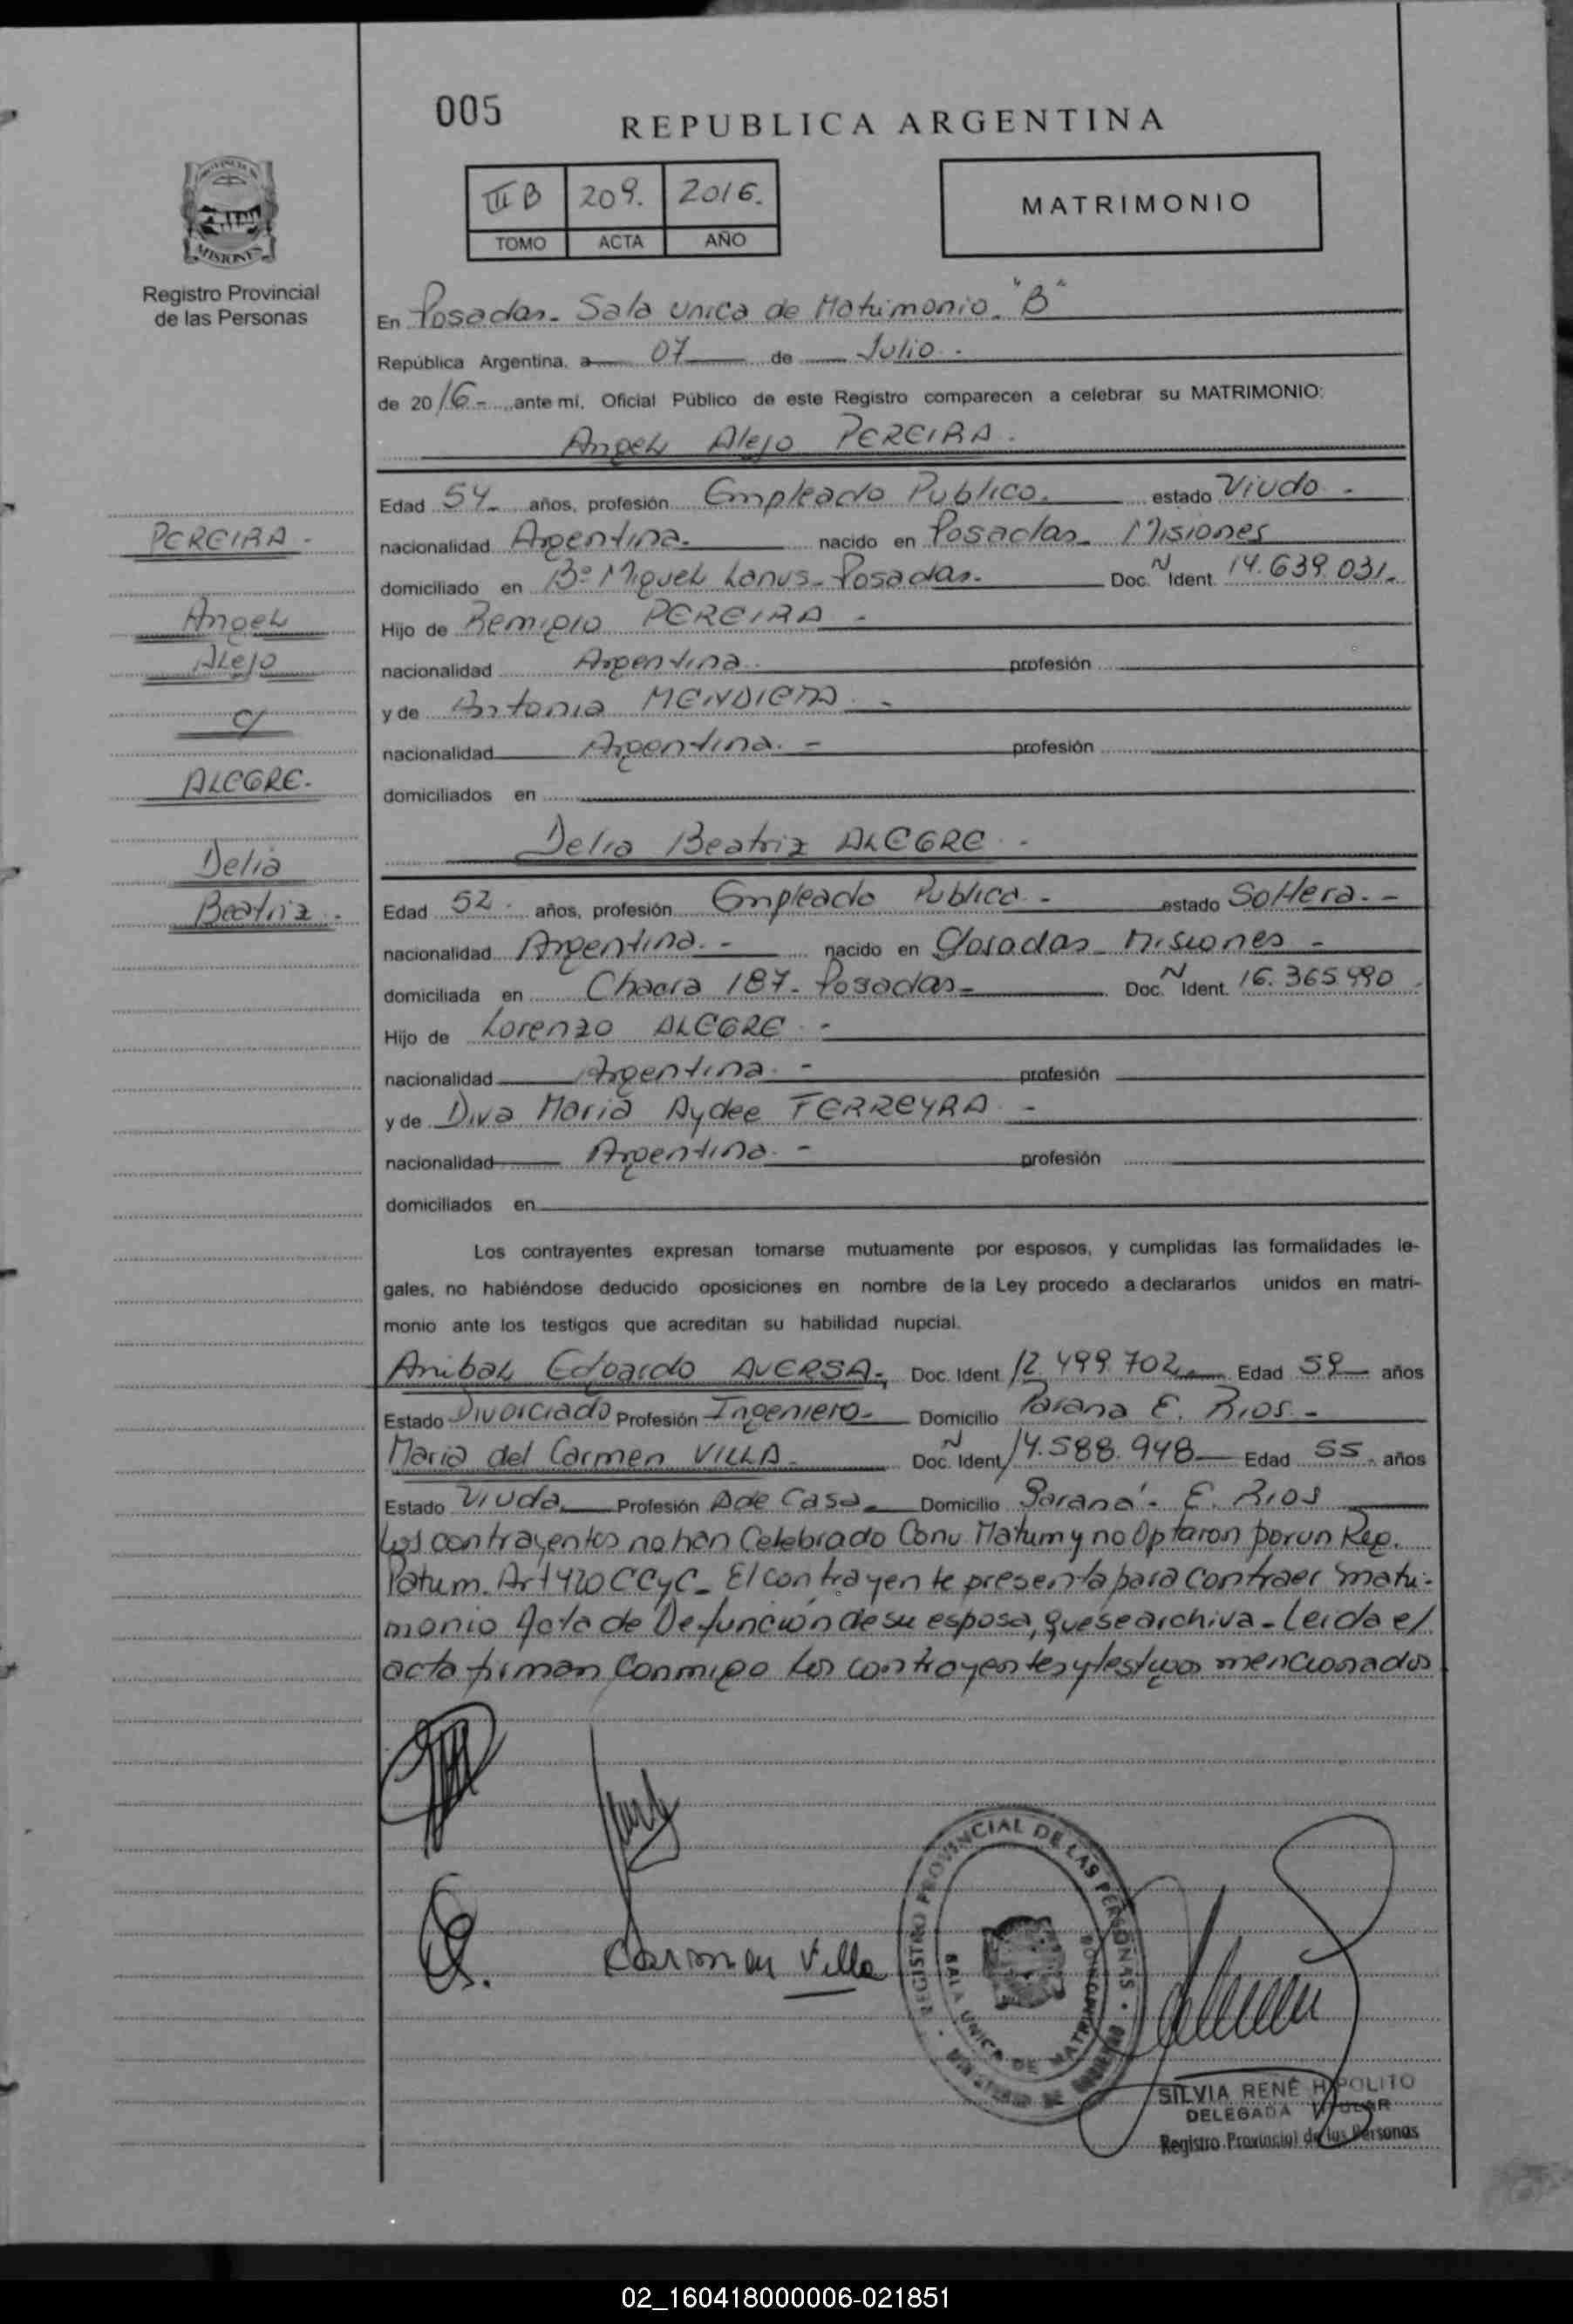 005
REPUBLICA ARGENTINA
III B 209. 2016.
TOMO ACTA AÑO
MATRIMONIO
PROVINCIA
MISIONES
Registro Provincial
de las Personas
En Posadas- Sala unica de Matrimonio "B"
República Argentina, a 07 de Julio.
de 2016- ante mí, Oficial Público de este Registro comparecen a celebrar su MATRIMONIO:
Angel Alejo PEREIRA.
Edad 54 años, profesión Empleado Publico. estado Viudo.-
nacionalidad Argentina. nacido en Posadas- Misiones
domiciliado en Bº Miguel Lanus- Posadas. Doc. N Ident. 14.639.031.
Hijo de Remigio PEREIRA -
nacionalidad Argentina. profesión
y de Antonia MENDIETA -
nacionalidad Argentina. - profesión
domiciliados en
PEREIRA -
Angel
Alejo
c/
ALEGRE.
Delia
Beatriz.
Delia Beatriz ALEGRE.
Edad 52. años, profesión Empleado Publica - estado Soltera.-
nacionalidad Argentina.- nacido en Posadas- Misiones -
domiciliada en Chacra 187- Posadas- Doc. N Ident. 16.365.990
Hijo de Lorenzo ALEGRE -
nacionalidad Argentina. - profesión
y de Diva Maria Aydee FERREYRA -
nacionalidad Argentina. - profesión
domiciliados en
Los contrayentes expresan tomarse mutuamente por esposos, y cumplidas las formalidades le-
gales, no habiéndose deducido oposiciones en nombre de la Ley procedo a declararlos unidos en matri-
monio ante los testigos que acreditan su habilidad nupcial.
Anibal Edgardo AVERSA- Doc. Ident 12.499.702 Edad 59 años
Estado Divorciado Profesión Ingeniero- Domicilio Parana E. Rios -
Maria del Carmen VILLA- Doc. N Ident 14.588.948 Edad 55 años
Estado Viuda Profesión A de Casa Domicilio Paraná- E. Rios
Los contrayentes no han Celebrado Conv. Matrim y no Optaron por un Reg.
Patrim. Art 420 CCyC- El contrayente presenta para contraer matri-
monio Acta de Defunción de su esposa, que se archiva- Leida el
acta firman conmigo los contrayentes y testigos mencionados
Carmen Villa
REGISTRO PROVINCIAL DE LAS PERSONAS
SALA UNICA DE MATRIMONIO
SILVIA RENÉ HIPOLITO
DELEGADA TITULAR
Registro Provincial de las Personas
02_160418000006-021851